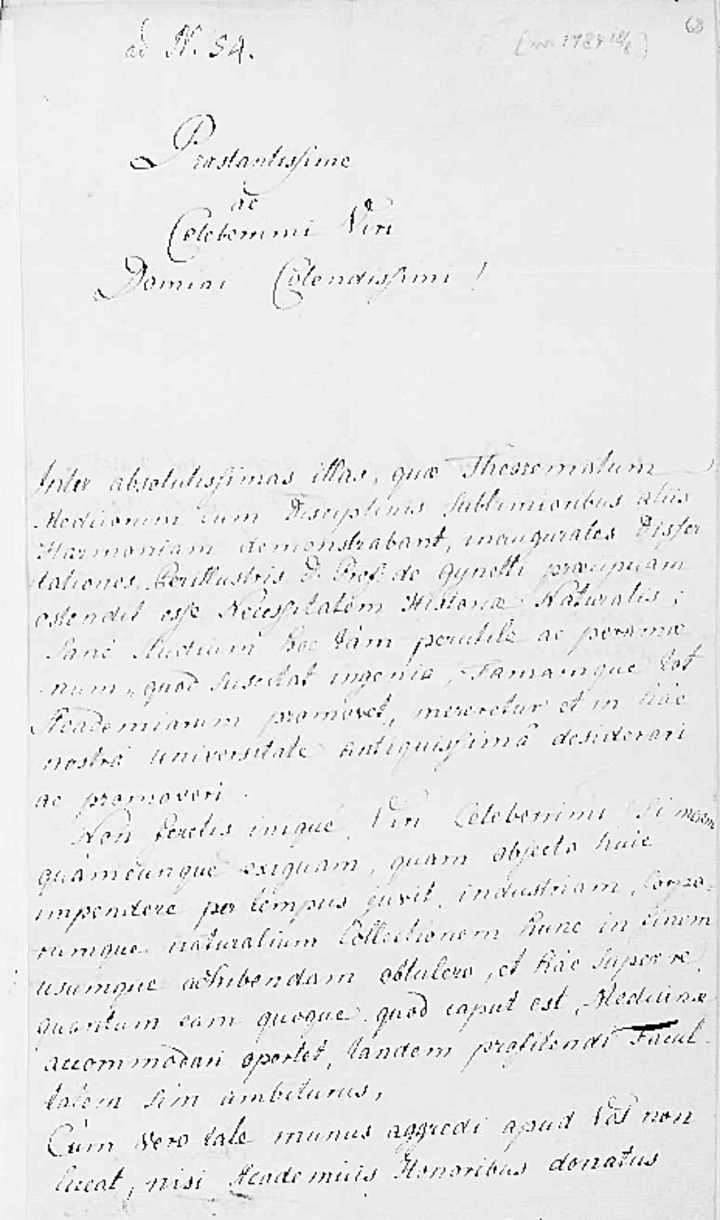 68
ad N. 54.
Præstantissime
ac
Celeberrimi Viri
Domini Colendissimi!
Inter absolutissimas illas, quæ Theorematum
Medicorum cum Disciplinis sublimioribus aliis
Harmoniam demonstrabant, inaugurales Disser
tationes Perillustris D. Prof. de Gynetti præcipuam
ostendit esse Necessitatem Historiæ Naturalis;
Sane studium hoc tam perutile ac peramæ
num, quod suscitat ingenia, Famamque tot
Academiarum promovet, mereretur et in hac
nostra Universitate antiquissimâ desiderari
ac promoveri.
Non feretis inique, Viri Celeberrimi si meam
quamcunque exiguam, quam objecto huic
impendere per tempus juvit, industriam, Corpo=
rumque naturalium Collectionem hunc in finem
usumque adhibendam obtulero, et hac super re
quantum eam quoque, quod caput est, Medicinæ
accommodari oportet, tandem profitendi Facul=
tatem sim ambiturus,
Cùm vero tale munus aggredi apud Vos non
liceat, nisi Academicis Honoribus donatus